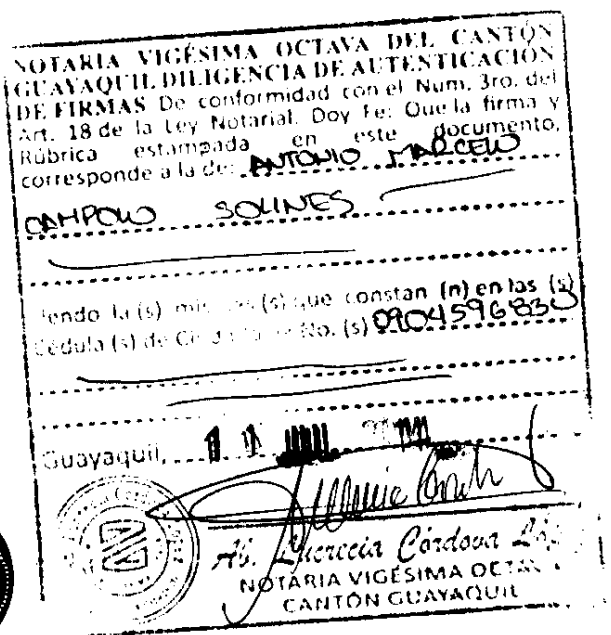 NOTARIA VIGÉSIMA OCTAVA DEL CANTÓN
GUAYAQUIL DILIGENCIA DE AUTENTICACIÓN
DE FIRMAS De conformidad con el Num. 3ro. del
Art. 18 de la Ley Notarial. Doy Fe: Que la firma y
Rúbrica estampada en este documento,
corresponde a la de: ANTONIO MARCELO
CAMPOLO SOLINES
la (s) (s) que constan (n) en las (s)
Cédula (s) de No. (s) 0904596830
Guayaquil,
Ab. Lucrecia Córdova
NOTARIA VIGÉSIMA OCTAVA
CANTÓN GUAYAQUIL